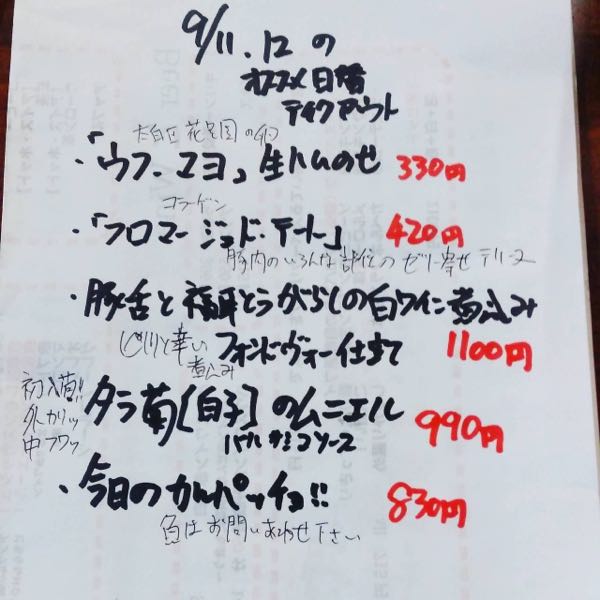 9/11.12の
オススメ日替
テイクアウト
花兄園の卵
・「ウフ・マヨ」生ハムのせ 330円
コラーゲン
・「フロマージュド・テート」 420円
豚肉のいろんな部位のゼリー寄せテリーヌ
・豚舌と福耳とうがらしの白ワイン煮込み
ピリリと辛い煮込み
フォンドヴォー仕立て 1100円
初入荷!!
外カリッ
中フワッ
タラ菊[白子]のムニエル 990円
バルサミコソース
・今日のカルパッチョ!! 830円
魚はお問いあわせ下さい